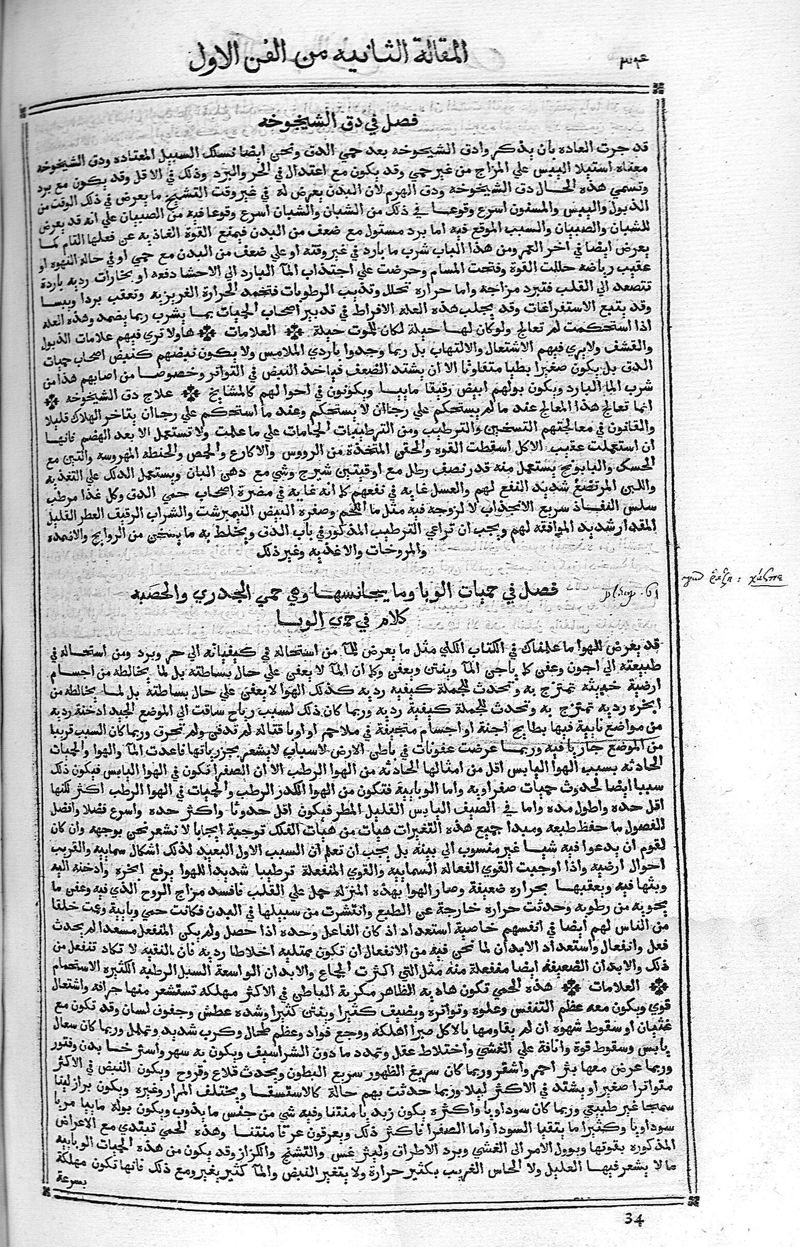 المقالة الثانيه من الفن الاول
فصل في دق الشيخوخه
قد جرت العاده بان يذكروا دق الشيخوخه بعد حمي الدق ونحن ايضا نسلك السبيل المعتاده ودق الشيخوخه
معناه استيلا اليبس علي المزاج من غير حمي وقد يكون مع اعتدال في الحر والبرد وذلك في الاقل وقد يكون مع برد
وتسمي هذه الحال دق الشيخوخه ودق الهرم لان البدن يعرض له في غير وقت التشيخ ما يعرض في ذلك الوقت من
الذبول واليبس والمسنون اسرع وقوعا في ذلك من الشبان والشبان اسرع وقوعا فيه من الصبيان علي انه قد يعرض
للشبان والصبيان والسبب الموقع فيه اما برد مستول مع ضعف من البدن فيمنع القوة الغاذيه عن فعلها التام كما
يعرض ايضا في اخر العمر ومن هذا الباب شرب ما بارد في غير وقته او علي ضعف من البدن مع حمي او في حاله النهوه او
عقيب رياضه حللت القوة وفتحت المسام وحرضت علي اجتذاب المآ البارد الي الاحشا دفعه او بخارات رديه باردة
تتصعد الي القلب فتبرد مزاجه واما حراره تحلل وتذيب الرطوبات فتخمد الحرارة الغريزيه وتعقب بردا ويبسا
وقد يتبع الاستفراغات وقد يجلب هذه العله الافراط في تدبير اصحاب الحميات بما يشرب ربما يضمد وهذه العله
اذا استحكمت لم تعالج ولو كان لها حيلة لكان للموت حيلة ❊ العلامات ❊ هاولا تري فيهم علامات الذبول
والقشف ولا يري فيهم الاشتعال والالتهاب بل ربما وجدوا باردي الملامس ولا يكون نبضهم كنبض اصحاب حميات
الدق بل يكون صغيرا بطيا متفاوتا الا ان يشتد الضعف فياخذ النبض في التواتر وخصوصا من اصابهم هذا من
شرب المآ البارد ويكون بولهم ابيض رقيقا ماييا ويكونون في احوالهم كالمشايخ ❊ علاج دق الشيخوخه ❊
انما تعالج هذا المعالج عند ما لم يستحكم علي رجاان لا يستحكم وعند ما استحكم علي رجاان يتاخر الهلاك قليلا
والقانون في معالجتهم التسخين والترطيب ومن الترطيبات الحمامات علي ما علمت ولا تستعمل الا بعد الهضم فانها
ان استعملت عقيب الاكل اسقطت القوه والحقن المتخذة من الرووس والاكارع والحمص والحنطه المهروسه والتين مع
الحسك والبابونج يستعمل منه قدر نصف رطل مع اوقيتين شيرج وشي مع دهن البان ويستعمل الدلك علي التغذيه
واللبن المرتضع شديد النفع لهم والعسل غايه في نفعهم كما انه غايه في مضرة اصحاب حمي الدق وكل غذا مرطب
سلس النفاذ سريع الانجذاب لا لزوجه فيه مثل ما اللحم وصفره البيض النيمبرشت والشراب الرقيف العطر القليل
المقدار شديد الموافقه لهم ويجب ان تراعي الترطيب المذكور في باب الدق ويخلط به ما يسخن من الروايح والاضمده
والمروخات والاغذيه وغير ذلك
فصل في حميات الوبا وما يجانسها وهي حمي الجدري والحصبه
كلام في حمي الوبا
قد يعرض للهوا ما علمناك في الكتاب الكلي مثل ما يعرض للمآ من استحاله في كيفياته الي حر وبرد ومن استحاله في
طبيعته الي اجون وعفن كما ياجن المآ وينتن ويعفن وكما ان المآ لا يعفن علي حال بساطته بل لما يخالطه من اجسام
ارضية خبيثه تمتزج به وتحدث للجملة كيفيه رديه كذلك الهوا لا يعفن علي حال بساطته بل لما يخالطه من
ابخره رديه تمتزج به وتحدث للجملة كيفية رديه وربما كان ذلك لسبب رياح ساقت الي الموضع الجيد ادخنة رديه
من مواضع نايية فيها بطايح اجنة او اجسام متجيفة في ملاحم او اوبا قتاله لم تدفن ولم تحرق وربما كان السبب قريبا
من الموضع جاريا فيه وربما عرضت عفونات في باطن الارض لاسباب لا يشعر بجزياتها فاعدت المآ والهوا والحميات
الحادثه بسبب الهوا اليابس اقل من امثالها الحادثه من الهوا الرطب الا ان الصفرا تكون في الهوا اليابس فيكون ذلك
سببا ايضا لحدوث حميات صفراويه واما الوبايية فتكون من الهوا الكدر الرطب والحميات في الهوا الرطب اكثر لكنها
اقل حده واطول مده واما في الصيف اليابس القليل المطر فيكون اقل حدوثا واكثر حده واسرع فصلا وافضل
الفصول ما حفظ طبعه ومبدا جميع هذه التغيرات هيات من هيات الفلك توجبه ايجابا لا نشعر نحن بوجهه وان كان
لقوم ان يدعوا فيه شيا غير منسوب الي بينه بل يجب ان تعلم ان السبب الاول البعيد لذلك اشكال سماييه والقريب
احوال ارضيه واذا اوجبت القوي الفعاله السماييه والقوي المنفعلة ترطيبا شديدا للهوا برفع ابخره وادخنه اليه
وبثها فيه ويعفنها بحراره ضعيفة وصار الهوا بهذه المنزله حمل علي القلب فافسد مزاج الروح الذي فيه وعفن ما
يحويه من رطوبه وحدثت حراره خارجة عن الطبع وانتشرت من سبيلها في البدن فكانت حمي وبايية وعمت خلقا
من الناس لهم ايضا في انفسهم خاصية استعداد اذ كان الفاعل وحده اذا حصل ولم يكن المنفعل مستعدا لم يحدث
فعل وانفعال واستعداد الابدان لما نحن فيه من الانفعال ان تكون ممتليه اخلاطا رديه فان النقيه لا تكاد تنفعل من
ذلك والابدان الضعيفه ايضا منفعلة منه مثل التي اكثرت الجماع والابدان الواسعة السبل الرطبه الكثيره الاستحمام
❊ العلامات ❊ هذه الحمي تكون هاديه الظاهر مكربة الباطن في الاكثر مهلكة تستشعر منها حرافه واشتعال
قوي ويكون معه عظم التنفس وعلوه وتواتره ويضيف كثيرا وينتن كثيرا وشده عطش وجفوف لسان وقد تكون مع
غثيان او سقوط شهوه ان لم يقاومها بالاكل صبرا اهلكه ووجع فواد وعظم طحال وكرب شديد وتململ وربما كان سعال
يابس وسقوط قوة وانافة علي الغشي واختلاط عقل وتمدد ما دون الشراسيف ويكون به سهر واسترخا بدن وفتور
وربما عرض معها بثر احمر واشقر وربما كان سريع الظهور سريع البطون ويحدث قلاع وقروح ويكون النبض في الاكثر
متواترا صغيرا ويشتد في الاكثر ليلا وربما حدثت بهم حالة كالاستسقا ويختلف المرار وغيره ويكون براز لينا
سمجا غير طبيعي وربما كان سوداويا واكثره يكون زبديا منتنا وفيه شي من جنس ما يذوب ويكون بوله ماييا مريا
سوداويا وكثيرا ما يتقيا السودا واما الصفرا فاكثر ذلك ويعرقون عرقا منتنا وهذه الحمي تبتدي مع الاعراض
المذكوره بقوتها ويوول الامر الي الغشي وبرد الاطراف وليثرغس والتشنج والكزاز وقد يكون من هذه الحميات الوباييه
ما لا يشعر فيها العليل ولا الحاس الغريب بكثير حرارة ولا يتغير النبض والمآ كثير تغير ومع ذلك فانها تكون مهلكة
بسرعة
34